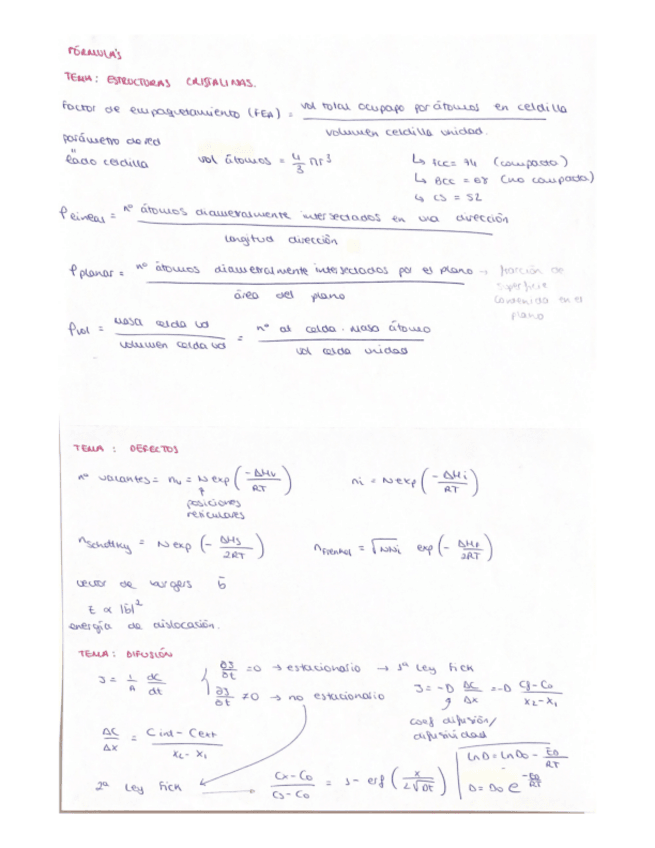 FÓRMULAS
TEMA: ESTRUCTURAS CRISTALINAS.
Factor de empaquetamiento (FEA) = vol total ocupado por átomos en celdilla / volumen celdilla unidad.
parámetro de red
"
lado celdilla
vol átomos = 4/3 πr³
↳ FCC = 74 (compacta)
↳ BCC = 68 (no compacta)
↳ CS = 52
ρ lineal = nº átomos diametralmente intersectados en una dirección / longitud dirección
ρ planar = nº átomos diametralmente intersectados por el plano / área del plano → fracción de
superficie
contenida en el
plano
ρ vol = masa celda ud / volumen celda ud = nº at celda · masa átomo / vol celda unidad
TEMA: DEFECTOS
nº vacantes = nv = N exp (-ΔHv / RT)
ni = N exp (-ΔHi / RT)
posiciones
reticulares
n Schottky = N exp (- ΔHs / 2RT)
n Frenkel = √NNi exp (- ΔHf / 2RT)
vector de burgers b̄
E ∝ |b̄|²
energía de dislocación.
TEMA: DIFUSIÓN
J = 1/A dC/dt
∂J/∂t = 0 → estacionario → 1ª Ley Fick
∂J/∂t ≠ 0 → no estacionario
J = -D ΔC/Δx = -D Cf - Co / x2 - x1
coef difusión/
difusividad
ΔC/Δx = C int - C ext / x2 - x1
2ª Ley Fick → Cx - Co / Cs - Co = 1 - erf (x / 2√Dt)
Ln D = Ln Do - ED/RT
D = Do e^(-ED/RT)